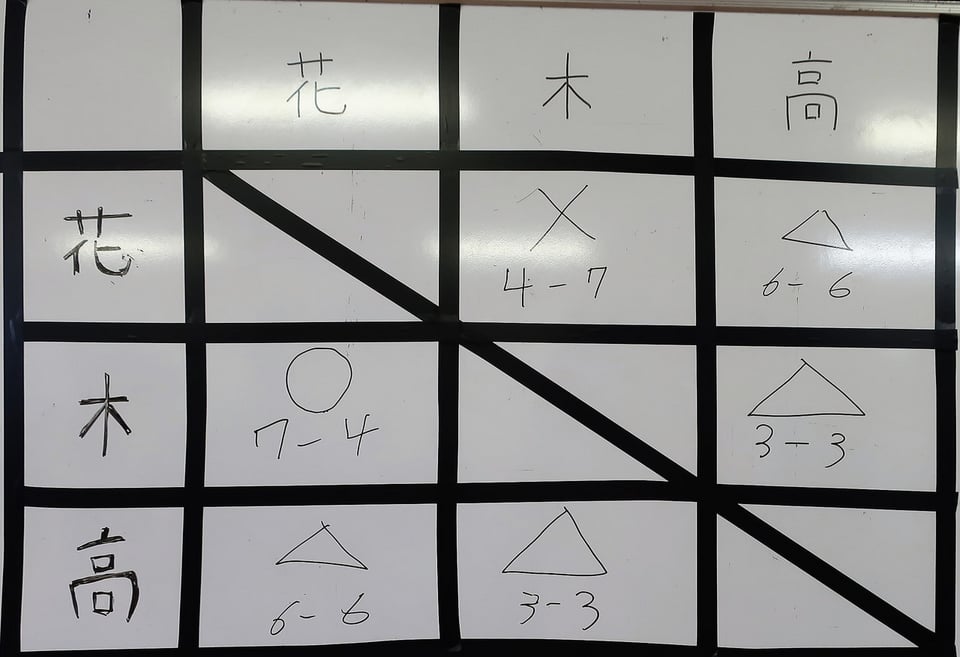 花 木 高
花 × 4-7 △ 6-6
木 ○ 7-4 △ 3-3
高 △ 6-6 △ 3-3